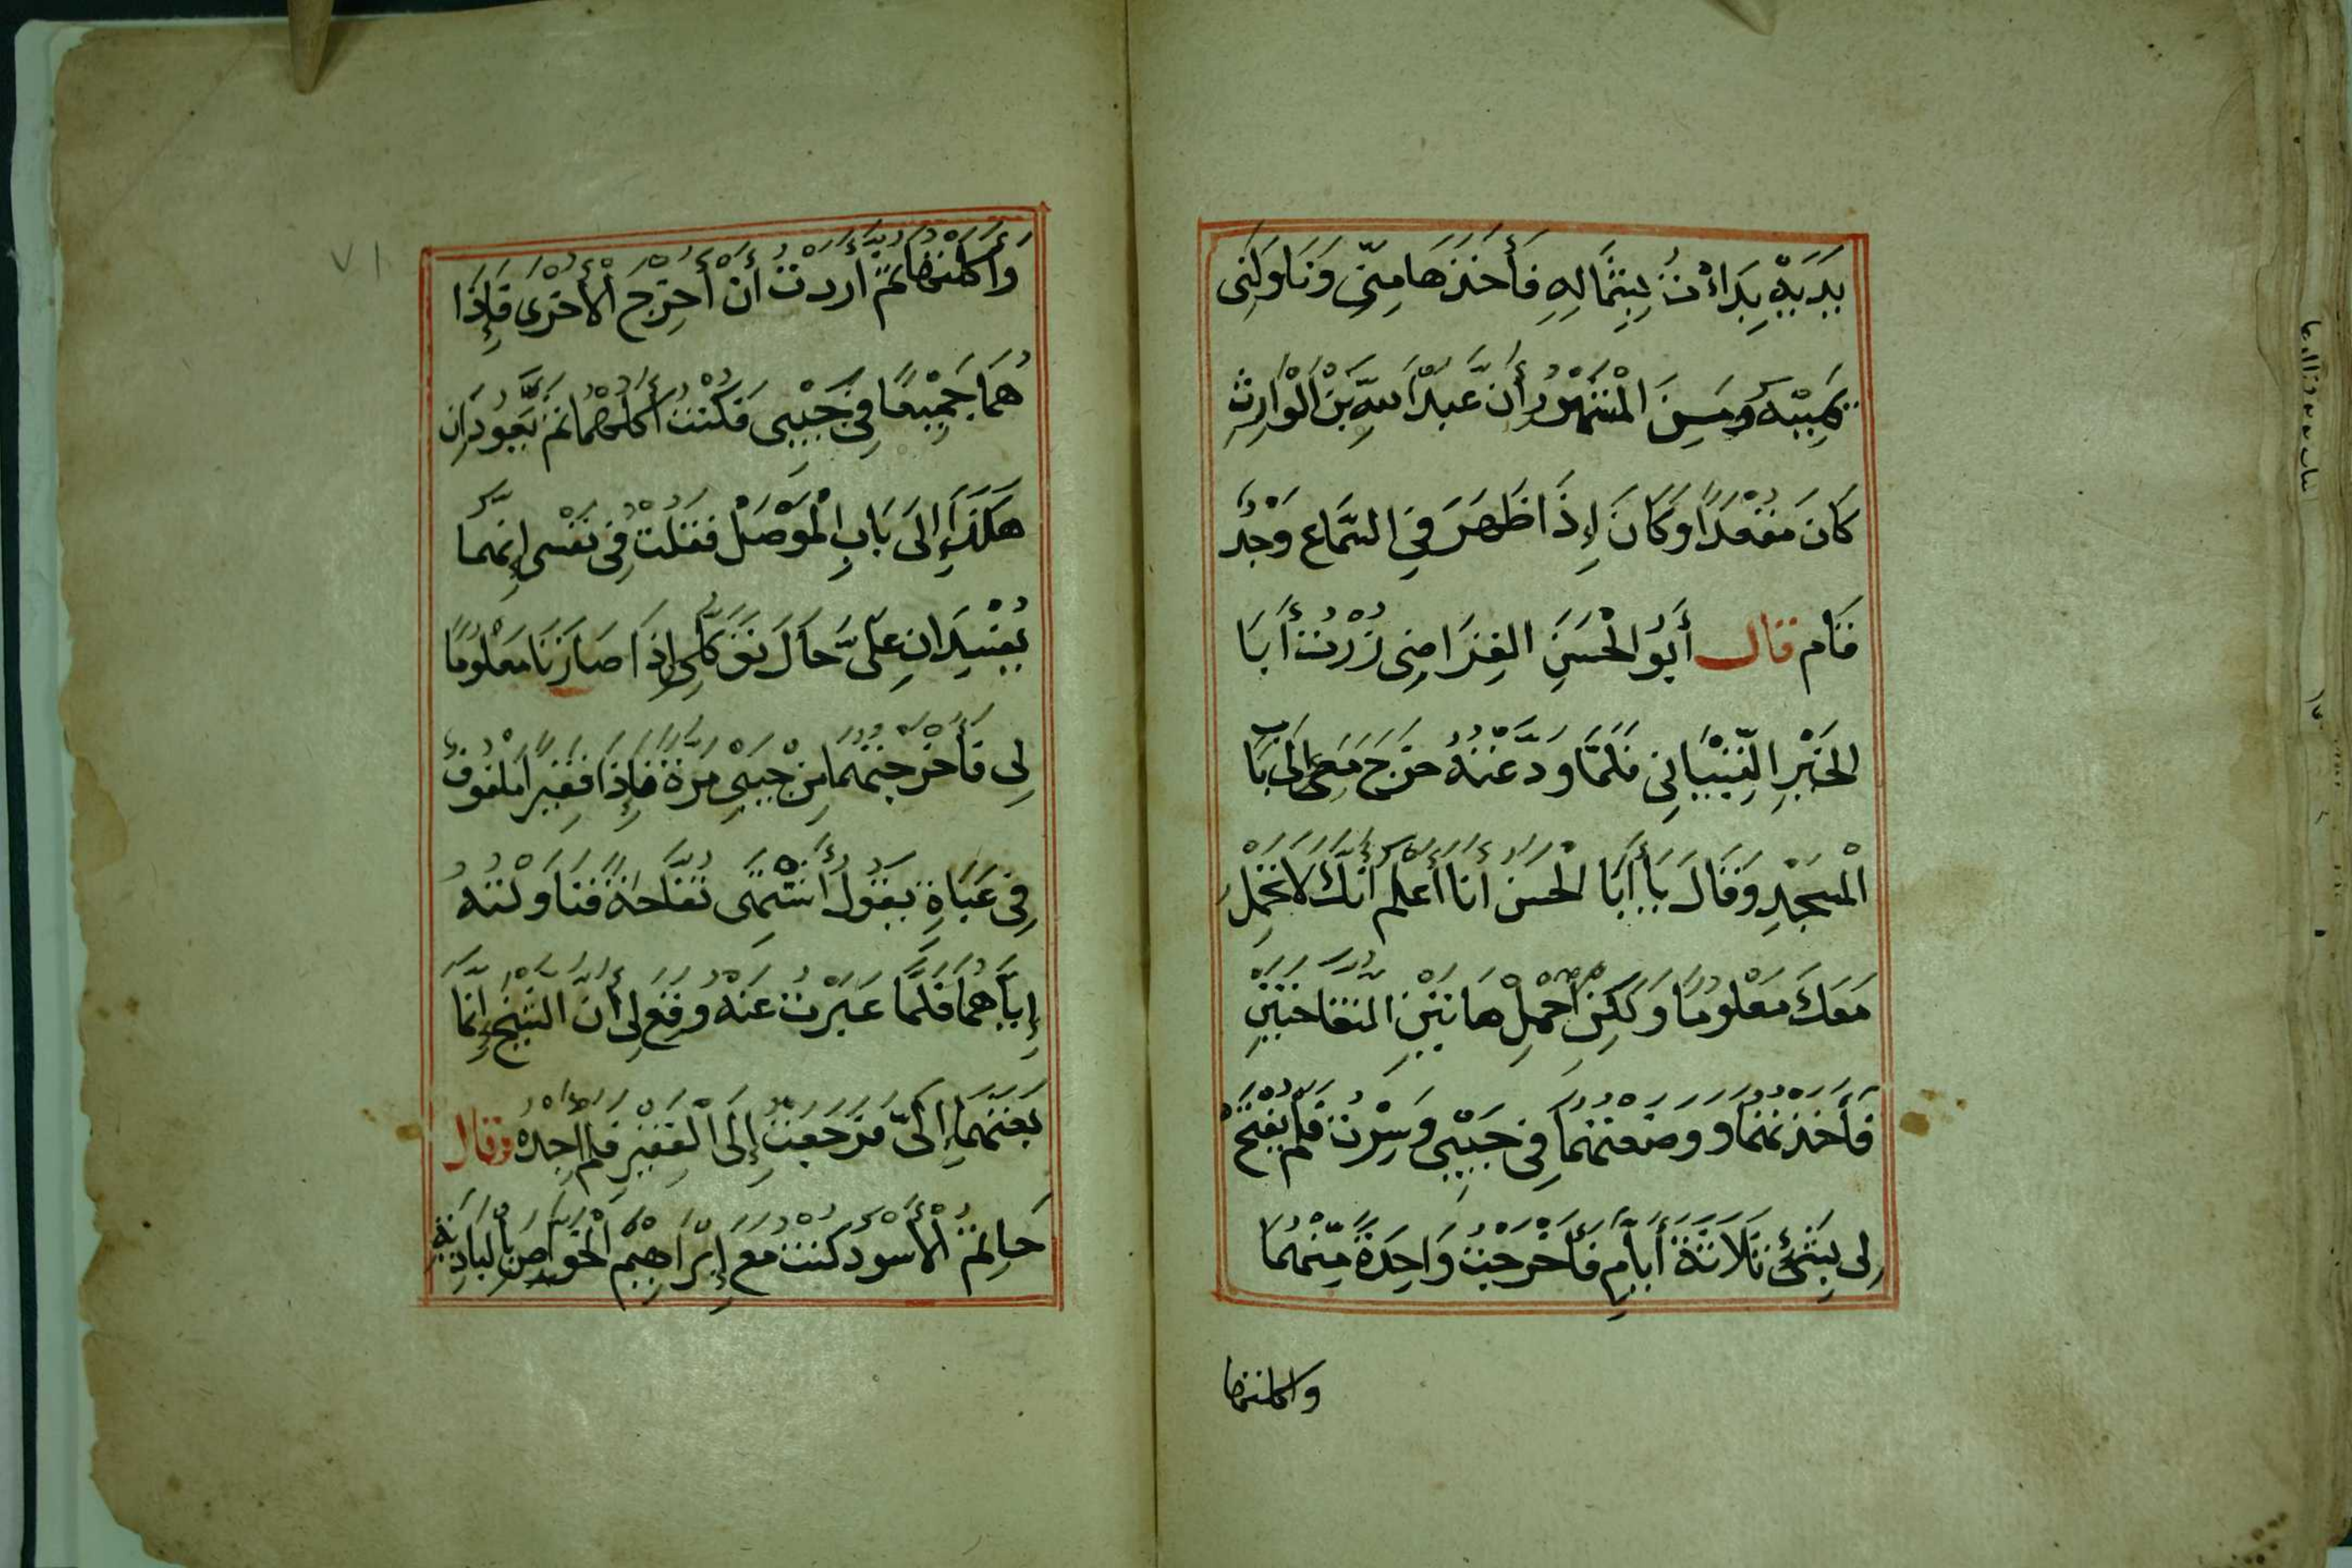 يَدَيْهِ بَدَأْتُ بِشِمَالِهِ فَأَخَذَهَا مِنِّي وَنَاوَلَنِي
يَمِينَهُ وَمِنَ الْمَشْهُورِ أَنَّ عَبْدَ اللهِ بْنَ الْوَارِثِ
كَانَ مُقْعَدًا وَكَانَ إِذَا ظَهَرَ فِي السَّمَاعِ وَجْدٌ
قَام قال أَبُو الْحَسَنِ القرَاضِي زُرْتُ أَبَا
الخَيْرِ التِّينَانِي فَلَمَّا وَدَّعْتُهُ خَرَجَ مَعِي إِلَى بَاب
الْمَسْجِدِ وَقَالَ يَا أَبَا الْحَسَنِ أَنَا أَعْلَمُ أَنَّكَ لَا تَحْمِلُ
مَعَكَ مَعْلُومًا وَلَكِنِ احْمِلْ هَاتَيْنِ التُّفَّاحَتَيْنِ
فَأَخَذْتُهُمَا وَوَضَعْتُهُمَا فِي جَيْبِي وَسِرْتُ فَلَمْ يُفْتَحْ
لِي بِشَيْءٍ ثَلَاثَةَ أَيَّامٍ فَأَخْرَجْتُ وَاحِدَةً مِنْهُمَا
واكلتها
٧١
وَأَكَلْتُهَا ثُمَّ أَرَدْتُ أَنْ أُخْرِجَ الْأُخْرَى فَإِذَا
هُمَا جَمِيعًا فِي جَيْبِي فَكُنْتُ آكُلُهُمَا ثُمَّ يَعُودَانِ
هَكَذَا إِلَى بَابِ الْمَوْصَلِ فَقُلْتُ فِي نَفْسِي إِنَّهُمَا
يُفْسِدَانِ عَلَيَّ حَالَ تَوَكُّلِي إِذَا صَارَتَا مَعْلُومًا
لِي فَأَخْرَجْتُهُمَا مِنْ جَيْبِي مَرَّةً فَإِذَا فَقِيرًا مَلْفُوفٌ
فِي عَبَاةٍ يَقُولُ أَشْتَهِي تُفَّاحَةً فَنَاوَلْتُهُ
إِيَّاهُمَا فَلَمَّا عَبَرْتُ عَنْهُ وَقَعَ لِي أَنَّ الشَّيْخَ إِنَّمَا
بَعَثَهُمَا إِلَيَّ فَرَجَعْتُ إِلَى الْفَقِيرِ فَلَم اجِدْهُ وقال
حَاتِمُ الْأَسْوَدُ كُنْتُ مَعَ إِبْرَاهِيمَ الْخَوَّاصِ بِالْبَادِيَةِ